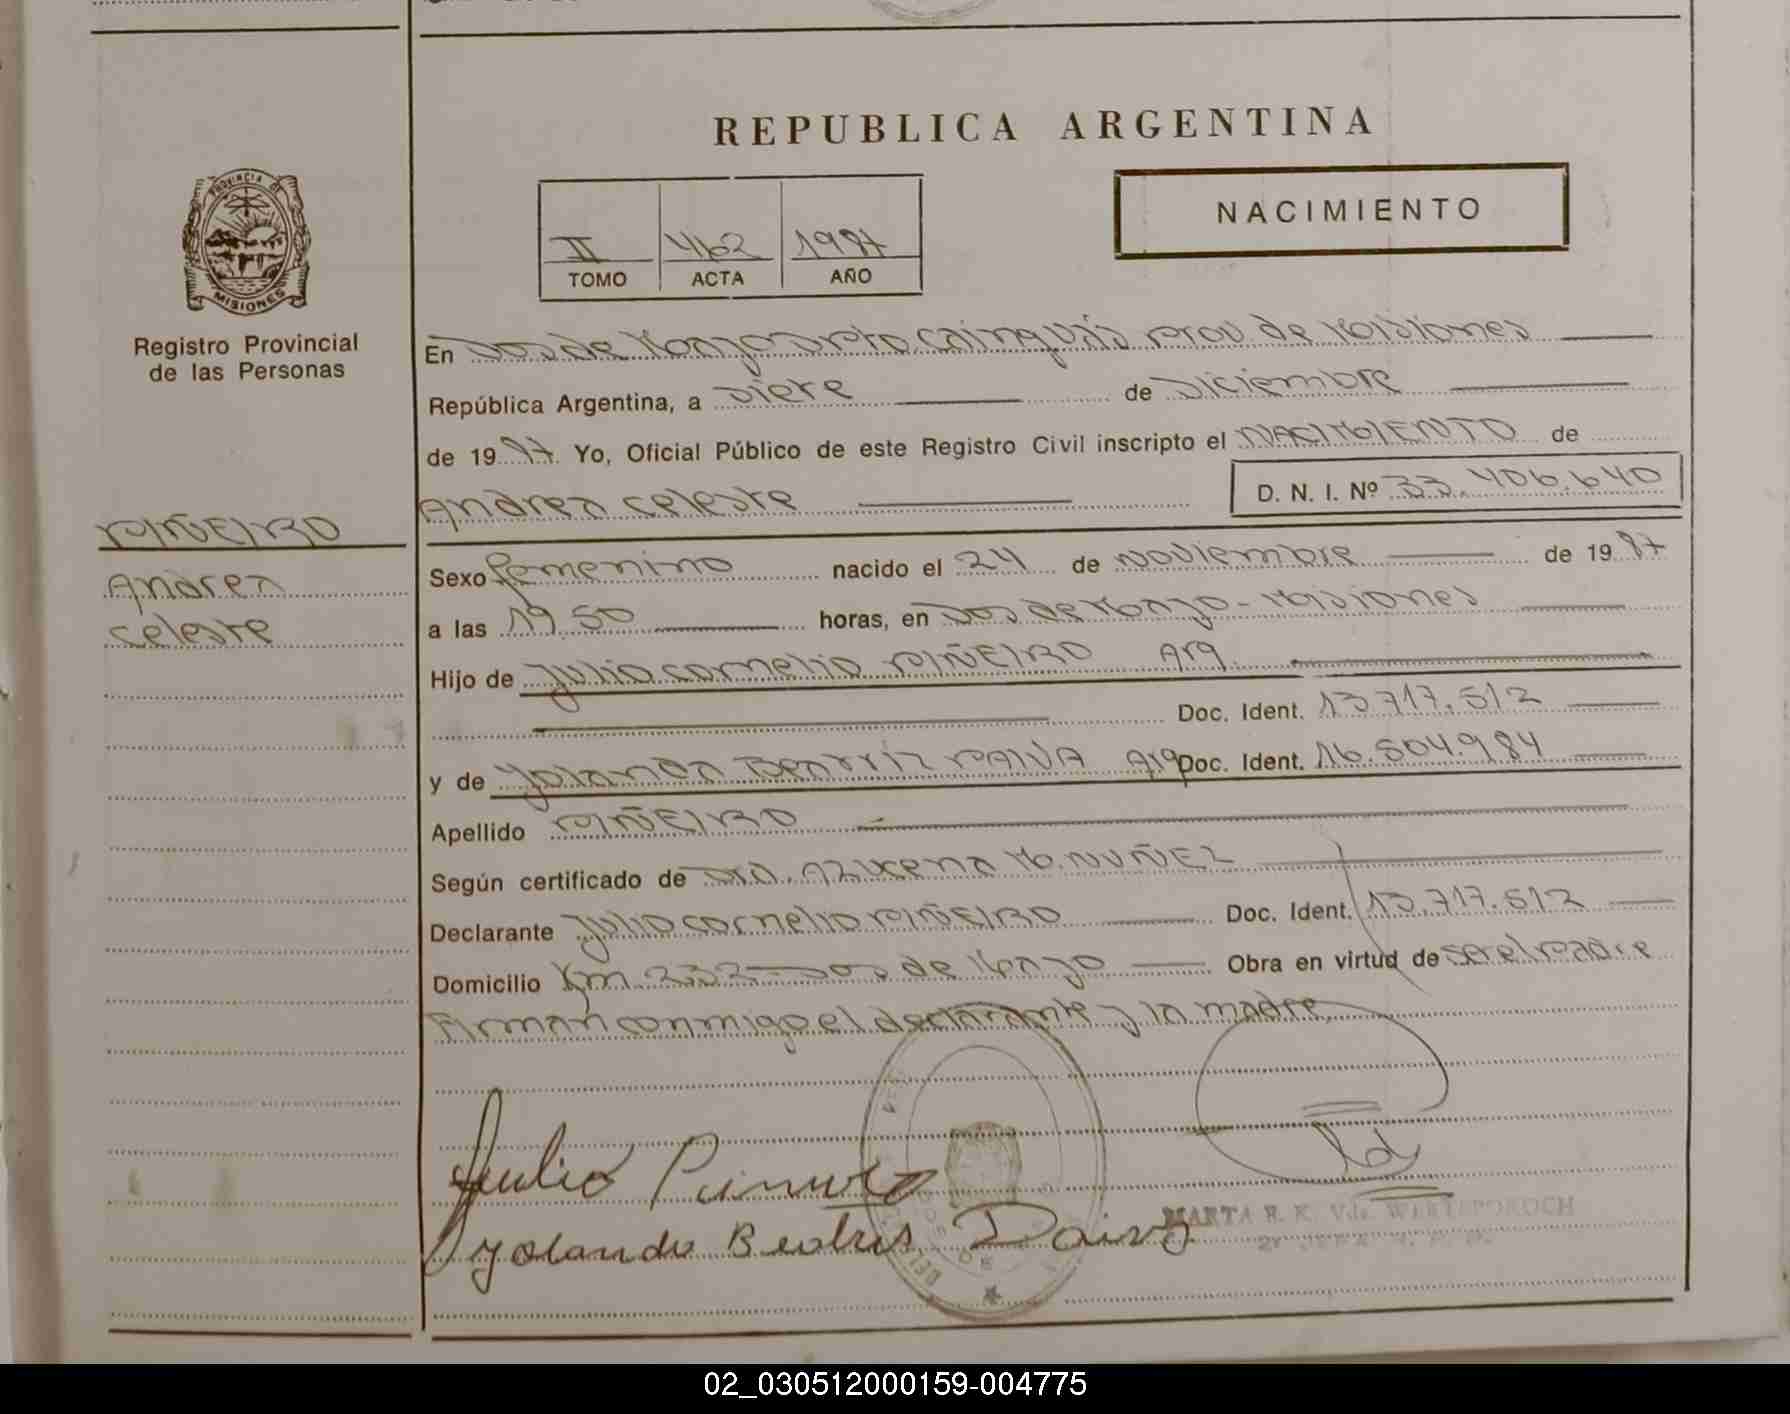 REPUBLICA ARGENTINA
NACIMIENTO
II 462 1987
TOMO ACTA AÑO
PROVINCIA DE
MISIONES
Registro Provincial
de las Personas
En Dos de Mayo Dpto. Cainguás Prov. de Misiones
República Argentina, a Siete de Diciembre
de 1987 Yo, Oficial Público de este Registro Civil inscripto el NACIMIENTO de
Andrea Celeste D. N. I. Nº 33.406.640
PIÑEIRO
Andrea
Celeste
Sexo femenino nacido el 24 de Noviembre de 1987
a las 19.50 horas, en Dos de Mayo - Misiones
Hijo de Julio Cornelio PIÑEIRO Arg.
Doc. Ident. 13.717.512
y de Yolanda Beatriz PAIVA Arg Doc. Ident. 16.504.984
Apellido PIÑEIRO
Según certificado de Dra. Azucena M. NUÑEZ
Declarante Julio Cornelio PIÑEIRO Doc. Ident. 13.717.512
Domicilio Km. 232 - Dos de Mayo Obra en virtud de ser el padre
Firman conmigo el declarante y la madre
Julio
Yolanda Beatris Paiva
MARTA R. K. Vda.
02_030512000159-004775